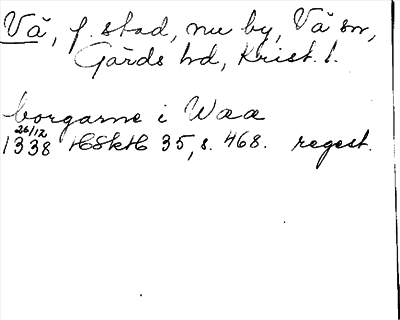 Vä, f. stad, nu by, Vä sn,
Gärds hd, Krist. l.
borgarne i Waa
26/12
1338 HSkH 35, s. 468. regest.